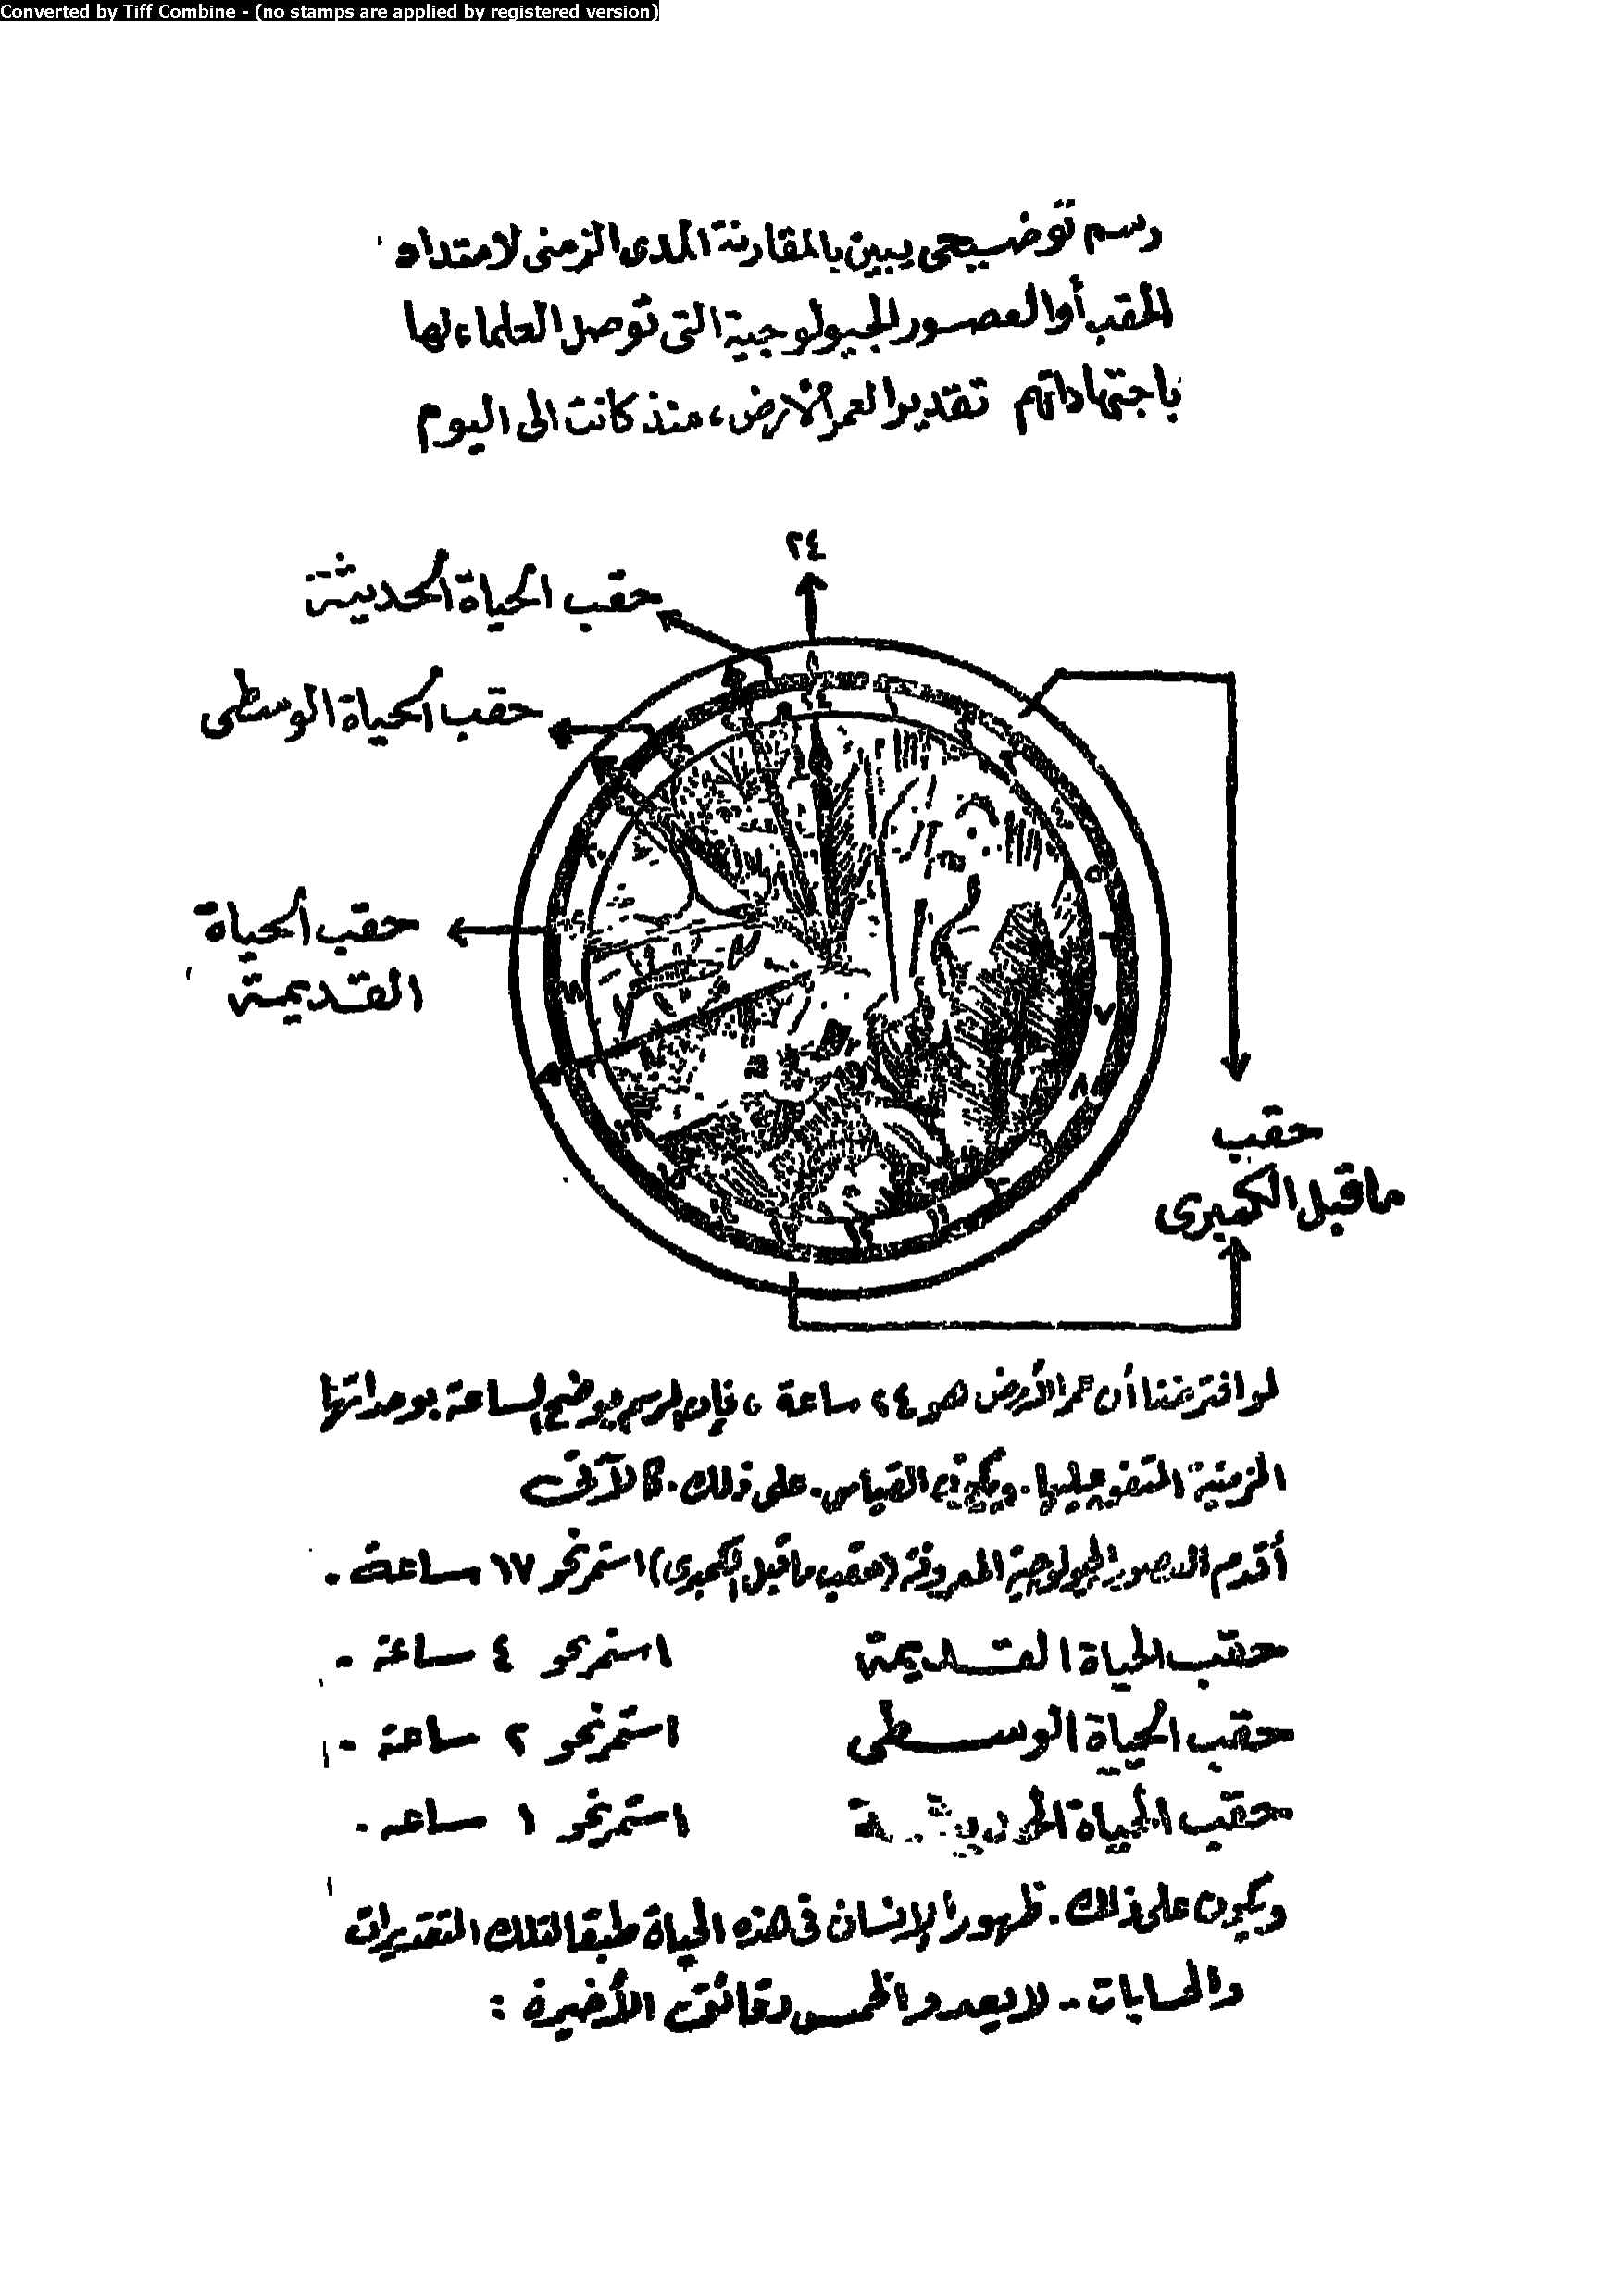 Converted by Tiff Combine - (no stamps are applied by registered version)
رسم توضيحى يبين بالمقارنة المدى الزمنى لامتداد
الحقب أو العصور الجيولوجية التى توصل العلماء لها
باجتهاداتهم تقديرا لعمر الأرض، منذ كانت الى اليوم
٢٤
حقب الحياة الحديثة
حقب الحياة الوسطى
حقب الحياة
القديمة
حقب
ما قبل الكمبرى
لو افترضنا أن عمر الأرض هو ٢٤ ساعة، فإن الرسم يوضح الساعة بوحداتها
الزمنية المتفق عليها. ويكون القياس. على ذلك. كالآتى
أقدم العصور الجيولوجية المعروفة (حقب ما قبل الكمبرى) استمر نحو ١٧ ساعة.
حقب الحياة القديمة استمر نحو ٤ ساعة.
حقب الحياة الوسطى استمر نحو ٢ ساعة.
حقب الحياة الحديثة استمر نحو ١ ساعه.
ويكون على ذلك. ظهور الإنسان فى هذه الحياة طبقا لتلك التقديرات
والحسابات - لا يعدو الخمس دقائق الأخيرة :